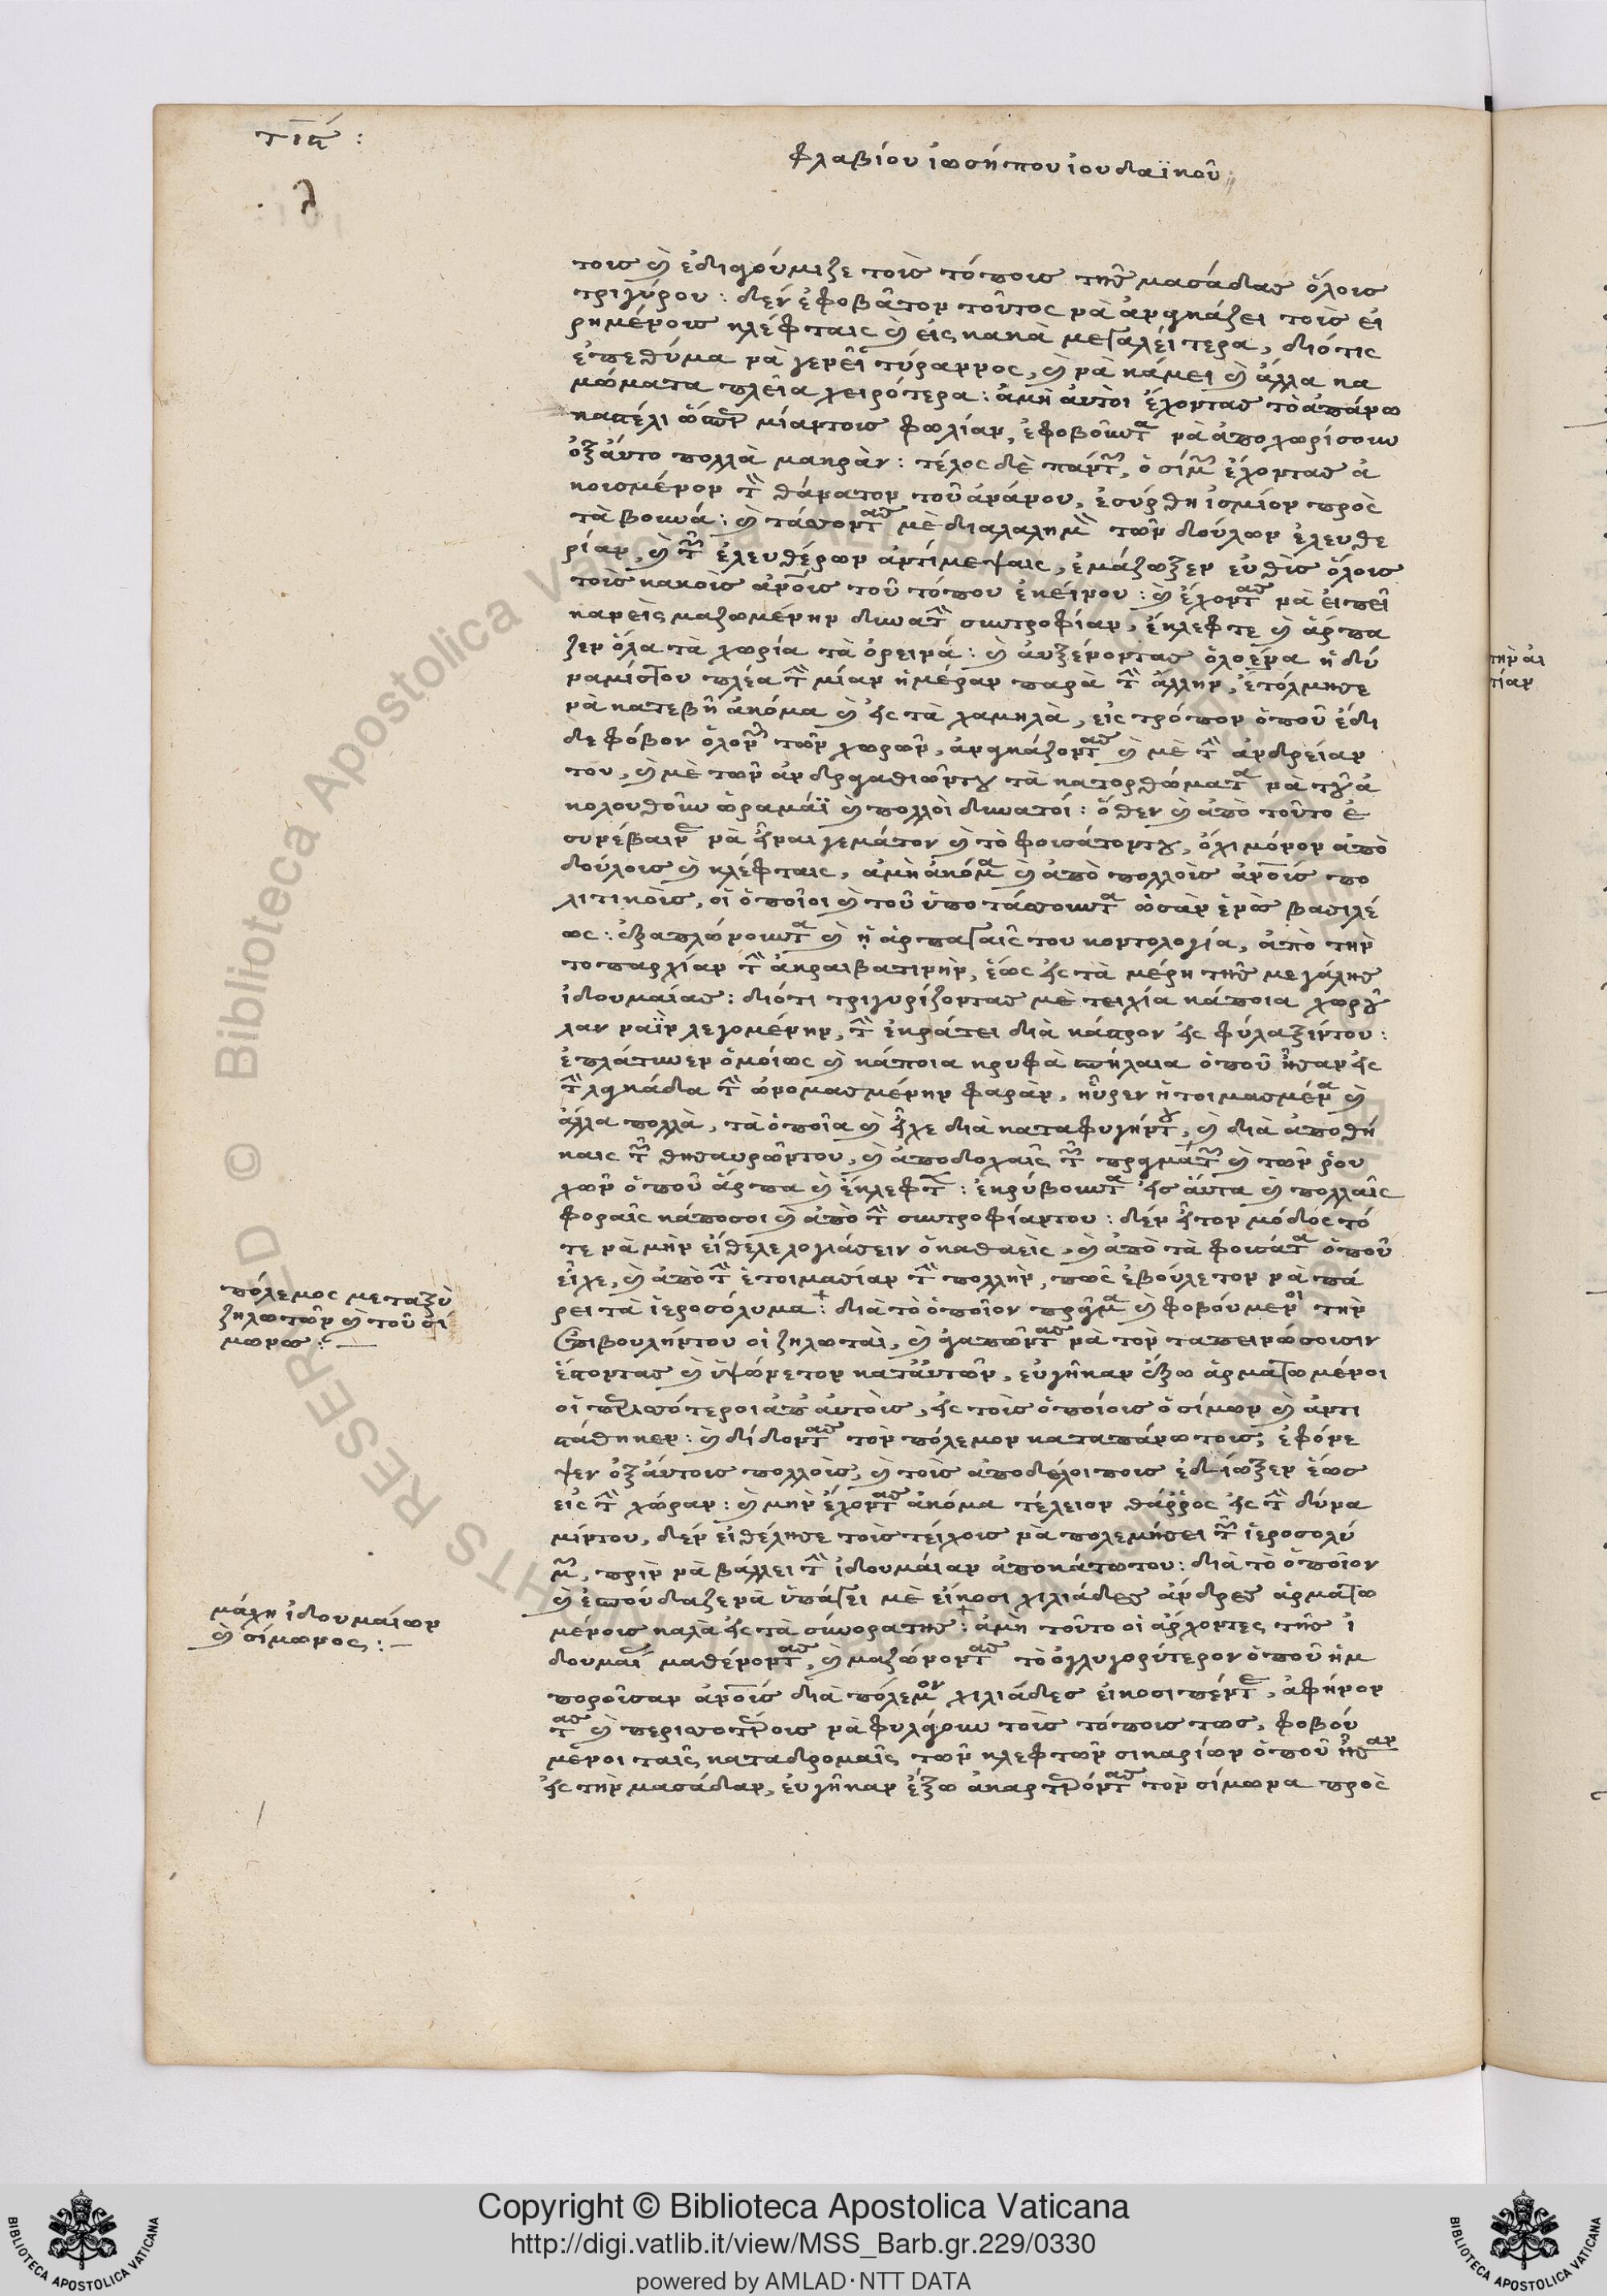 τιή :
λ
φλαβίου ἰωσήπου ἰουδαϊκοῦ
τοις καὶ ἐδιαγούμιζε τοὶς τόποις τῆς μασάδας ὅλοις
τριγύρου : δὲν ἐφοβᾶτον τοῦτος νὰ ἀρχηάζει τοὶς εἰ
ρημένοις κλέφταις καὶ εἰς κακὰ μεγαλείτερα, διότις
ἐπεθύμα νὰ γενεῖ τύραννος, καὶ νὰ κάμει καὶ ἄλλα κα
μώματα πλεῖα χειρότερα : ἀμὴ ἀυτοὶ ἔχοντας τὸ ἀπάνω
καστέλι ὥσπερ μίαντοις φωλίαν, ἐφοβοῦντα νὰ ἀποχωρίσουν
ὀξ ἀυτο πολλὰ μακρὰν : τέλος δὲ πάντων, ὁ σίμων ἔχοντας ἀ
κουσμένον τὸν θάνατον τοῦ ἀνάνου, ἐσύρθη ἰσμίον πρὸς
τὰ βουνά : καὶ τάσσοντας μὲ διαλαλημὸν τῶν δούλων ἐλευθε
ρίαν, καὶ τῶν ἐλευθέρων ἀντίμεψαις, ἐμάζωξεν εὐθὶς ὅλοις
τοὶς κακοὶς ἀνους τοῦ τόπου ἐκείνου : καὶ ἔχοντας νὰ εἰπεῖ
κανεὶς μαζωμένην δυνατὴν συντροφίαν, ἔκλεφτε καὶ ἅρπα
ζεν ὅλα τὰ χωρία τὰ ὀρεινά : καὶ ἀυξένοντας ὁλοένα ἡ δύ
ναμίστου πλέα τὴν μίαν ἡμέραν παρὰ τὴν ἄλλην, ἐτόλμησε
νὰ κατεβῆ ἀκόμα καὶ εἰς τὰ χαμηλὰ, εἰς τρόπον ὁποῦ ἔδι
δε φόβον ὅλον τῶν χωρῶν, ἀρχηάζοντας καὶ μὲ τὴν ἀνδρείαν
του, καὶ μὲ τῶν ἀνδραγαθιῶντου τὰ κατορθώματα νὰ τοῦ ἀ
κολουθοῦν ὁραμάϊ καὶ πολλοὶ δυνατοί : ὅθεν καὶ ἀπὸ τοῦτο ἐ
συνέβαινε νὰ εἶναι γεμάτον καὶ τὸ φουσάτοντου, ὄχι μόνον ἀπὸ
δούλοις καὶ κλέφταις, ἀμὴ ἀκόμα καὶ ἀπὸ πολλοὶς ἀνους πο
λιτικοὶς, οἱ ὁποῖοι καὶ τοῦ ὑποτάσσουντα ὡσὰν ἑνὸς βασιλέ
ως : ἐξαπλώνουντα καὶ ἡ ἁρπαγαῖς του κοντολογία, ἀπὸ τὴν
τοπαρχίαν τὴν ἀκραιβατινὴν, ἕως εἰς τὰ μέρη τῆς μεγάλης
ἰδουμαίας : διότι τριγυρίζοντας μὲ τειχία κάποια χωρου
λαν ναΐν λεγομένην, τὴν ἐκράτει διὰ κάστρον εἰς φύλαξίντου :
ἐπλάτυνεν ὁμοίως καὶ κάποια κρυφὰ σπήλαια ὁποῦ ἦσαν εἰς
τὴν λαγκάδα τὴν ὠνομασμένην φαρὰν, ηὗρεν ἡτοιμασμένα καὶ
ἄλλα πολλὰ, τὰ ὁποῖα καὶ εἶχε διὰ καταφυγήντου, καὶ διὰ ἀποθή
καις τῶν θησαυρῶντου, καὶ ἀποδοχαῖς τῶν πραγμάτων καὶ τῶν ῥου
χων ὁποῦ ἅρπα καὶ ἔκλεφτε : ἐκρύβουντα εἰς ἀυτα καὶ πολλαῖς
φοραῖς κάποσοι καὶ ἀπὸ τὴν συντροφίαντου : δὲν ἦτον μόδος τό
τε νὰ μὴν εἴθελε λογιάσειν ὁ καθαεὶς, καὶ ἀπὸ τὰ φουσάτα ὁποῦ
εἶχε, καὶ ἀπὸ τὴν ἑτοιμασίαν τὴν πολλὴν, πῶς ἐβούλετον νὰ πά
ρει τὰ ἱεροσόλυμα : διὰ τὸ ὁποῖον πρᾶγμα καὶ φοβούμενοι τὴν
ἐπιβουλήντου οἱ ζηλωταὶ, καὶ ἀγαπῶντας νὰ τὸν ταπεινώσουσιν
ἔστοντας καὶ ὑψώνετον κατ᾽ἀυτῶν, εὐγῆκαν ἔξω ἁρματωμένοι
οἱ περισσότεροι ἀπ᾽ἀυτοὶς, εἰς τοὶς ὁποίοις ὁ σίμων καὶ ἀντι
στάθηκεν : καὶ δίδοντας τὸν πόλεμον καταπάνωτοις, ἐφόνε
ψεν ὀξ ἀυτοις πολλοὶς, καὶ τοὶς ἀποδέλοιποις ἐδίωξεν ἕως
εἰς τὴν χώραν : καὶ μὴν ἔχοντας ἀκόμα τέλειον θάῤῥος εἰς τὴν δύνα
μίντου, δὲν εἰθέλησε τοὶς τείχοις νὰ πολεμήσει τῶν ἱεροσολύ
μων, πρὶν νὰ βάλλει τὴν ἰδουμάιαν ἀποκάτωτου : διὰ τὸ ὁποῖον
καὶ ἐσπούδαζε νὰ ὑπάγει μὲ εἴκοσι χιλιάδες ἄνδρες ἁρματω
μένοις καλὰ εἰς τὰ σύνορατης : ἀμὴ τοῦτο οἱ ἄρχοντες τῆς ἰ
δουμαίας μαθένοντας, καὶ μαζώνοντας τὸ ὀγλυγορύτερον ὁποῦ ἡμ
ποροῦσαν ἀνους διὰ πόλεμον χιλιάδες εἰκοσιπέντε, ἀφήνον
τας καὶ περισσοτέροις νὰ φυλάγουν τοὶς τόποις τως, φοβού
μενοι ταῖς καταδρομαῖς τῶν κλεφτῶν σικαρίων ὁποῦ ἦσαν
εἰς τὴν μασάδαν, ἐυγῆκαν ἔξω ἀπαντέχοντας τὸν σίμωνα πρὸς
πόλεμος μεταξὺ
ζηλωτῶν καὶ τοῦ σί
μωνος : —
μάχη ἰδουμαίων
καὶ σίμωνος : —
τὴν ἀλ
τίαν
Copyright © Biblioteca Apostolica Vaticana
http://digi.vatlib.it/view/MSS_Barb.gr.229/0330
powered by AMLAD·NTT DATA